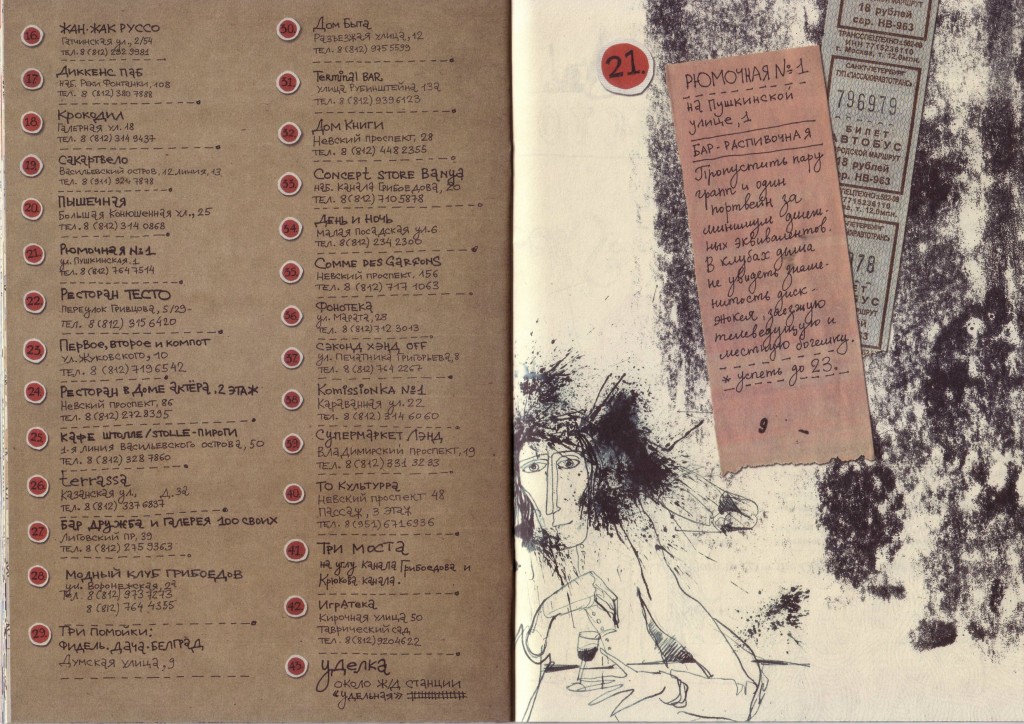 16
ЖАН-ЖАК РУССО
Гатчинская ул., 2/54
тел. 8 (812) 232 9981
17
Диккенс паб
наб. реки Фонтанки, 108
тел. 8 (812) 380 7888
18
Крокодил
Галерная ул. 18
тел. 8 (812) 314 9437
19
Сакартвело
Васильевский остров, 12 линия, 13
тел. 8 (911) 924 7878
20
Пышечная
Большая Конюшенная ул., 25
тел. 8 (812) 314 0868
21
Рюмочная №1
ул. Пушкинская, 1
тел. 8 (812) 764 7514
22
Ресторан ТЕСТО
переулок Гривцова, 5/29
тел. 8 (812) 315 6420
23
Первое, второе и компот
ул. Жуковского, 10
тел. 8 (812) 719 6542
24
Ресторан в Доме актёра. 2 этаж
Невский проспект, 86
тел. 8 (812) 272 8395
25
кафе Штолле/Stolle-пироги
1-я линия Васильевского острова, 50
тел. 8 (812) 328 7860
26
terrassa
Казанская ул., д. 3а
тел. 8 (812) 337 6837
27
Бар Дружба и Галерея 100 своих
Лиговский пр, 39
тел. 8 (812) 275 9363
28
Модный клуб Грибоедов
ул. Воронежская, 2а
тел. 8 (812) 973 7273
8 (812) 764 4355
29
Три помойки:
Фидель. Дача. Белград
Думская улица, 9
30
Дом Быта
Разъезжая улица, 12
тел. 8 (812) 975 5599
31
Terminal BAR
улица Рубинштейна, 13а
тел. 8 (812) 939 6123
32
Дом Книги
Невский проспект, 28
тел. 8 (812) 448 2355
33
Concept store Banya
наб. канала Грибоедова, 20
тел. 8 (812) 710 5878
34
День и Ночь
Малая Посадская ул. 6
тел. 8 (812) 234 2300
35
Comme des Garsons
Невский проспект, 156
тел. 8 (812) 717 1063
36
Фонотека
ул. Марата, 28
тел. 8 (812) 712 3013
37
Сэконд хэнд OFF
ул. Печатника Григорьева, 8
тел. 8 (812) 764 2267
38
Komissionka №1
Караванная ул. 22
тел. 8 (812) 314 6060
39
Супермаркет Лэнд
Владимирский проспект, 19
тел. 8 (812) 331 3233
40
ТО Культурра
Невский проспект 48
Пассаж, 3 этаж
тел. 8 (951) 671 6936
41
Три моста
на углу канала Грибоедова и
Крюкова канала.
42
Игратека
Кирочная улица 50
Таврический сад
тел. 8 (812) 920 4622
43
уделка
около ж/д станции
«Удельная»
21.
РЮМОЧНАЯ №1
на Пушкинской
улице, 1
БАР-РАСПИВОЧНАЯ
Пропустить пару
грапп и один
портвейн за
минимум денеж-
ных эквивалентов.
В клубах дыма
не увидеть знаме-
нитость, диск-
жокея, заезжую
телеведущую и
местную богемку.
* успеть до 23.
9
МАРШРУТ
18 рублей
сер. НВ-963
ИНН 7715236110
г. Москва
САНКТ-ПЕТЕРБУРГ
796979
БИЛЕТ
АВТОБУС
ГОРОДСКОЙ МАРШРУТ
18 рублей
ер. НВ-963
7715236110